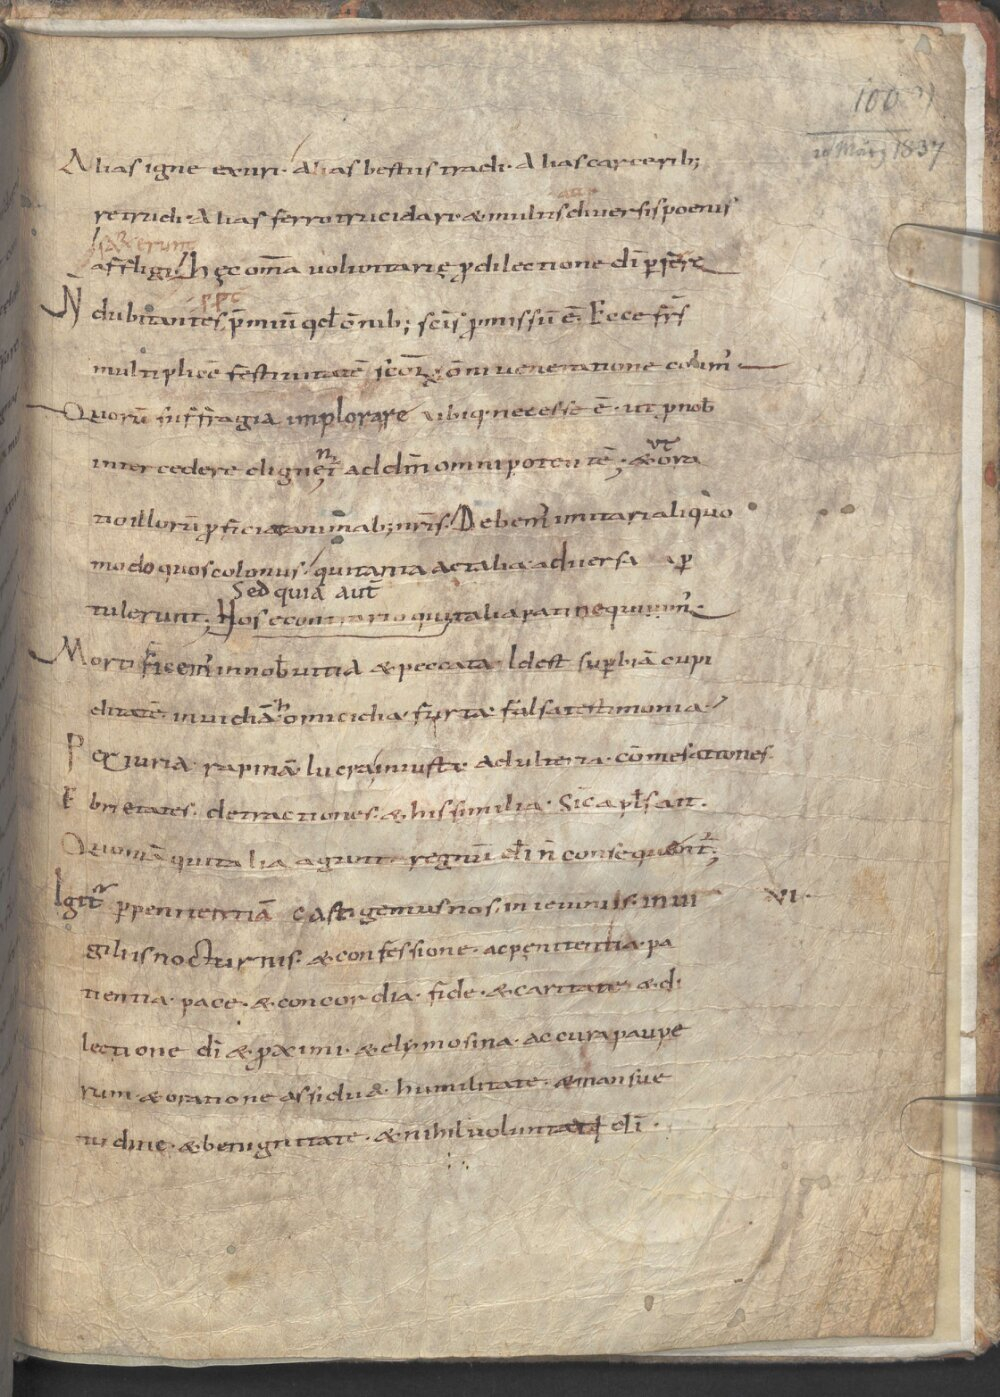 100
20 März 1837
Alias igne exuri· alias bestiis tradi· Alias carcerib;
retrudi· Alias ferro trucidari· & multis diversis poenis
affligi· hęc om̄a voluntarię p̱ dilectione dī
N dubitantes p̄miū qd̄ ōnib; sc̄is p̱missū ē· Ecce fr̄s
multiplicē festivitatē ōni veneratione
Quorū suffragia implorare ubiq· necesse ē· ut p̱ nob̄
intercedere ad dm̄ omnipotentē; & ut ora
tio illorū p̱ficiat animab; nr̄is· Debem᷒ imitari aliquo
modo quos colimus· qui tanta ac talia adversa p̱
Sed quia aut̄
tulerunt; Hos econtrario qui talia pati nequivim᷒·
Mortificem᷒ in nob̄ vitia & peccata· Id est sup̱biā cupi
ditatē· invidiā· homicidia· furta· falsa testimonia·
Periuria· rapinā· lucra iniusta· adulteria· cōmesationes·
Ebrietates· detractiones· & his similia· Sic apl̄s ait·
Quoniā qui talia agunt· regnū dī n̄ consequent᷒;
Igit᷒ p̱ penitentiā castigemus nos· in ieiuniis· in vi
VI·
giliis nocturnis· & confessione· ac pęnitentia· pa
tientia· pace· & concordia· fide· & caritate· & di
lectione dī & p̱ximi· & elymosina· ac cura paupe
rum· & oratione assidua· humilitate· & mansue
tudine· & benignitate· & nihil dī·